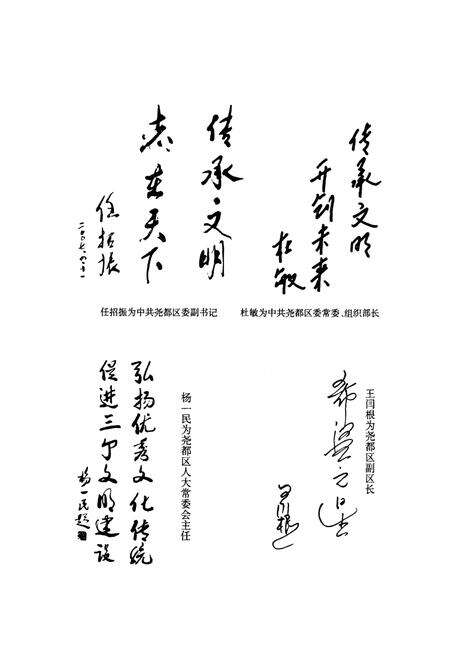 传承·文明
志在天下
任招振
任招振为中共尧都区委副书记
传承文明
开创未来
杜敏
杜敏为中共尧都区委常委、组织部长
杨一民为尧都区人大常委会主任
弘扬优秀文化传统
促进三个文明建设
杨一民题
王闫根为尧都区副区长
希望之星
王闫根